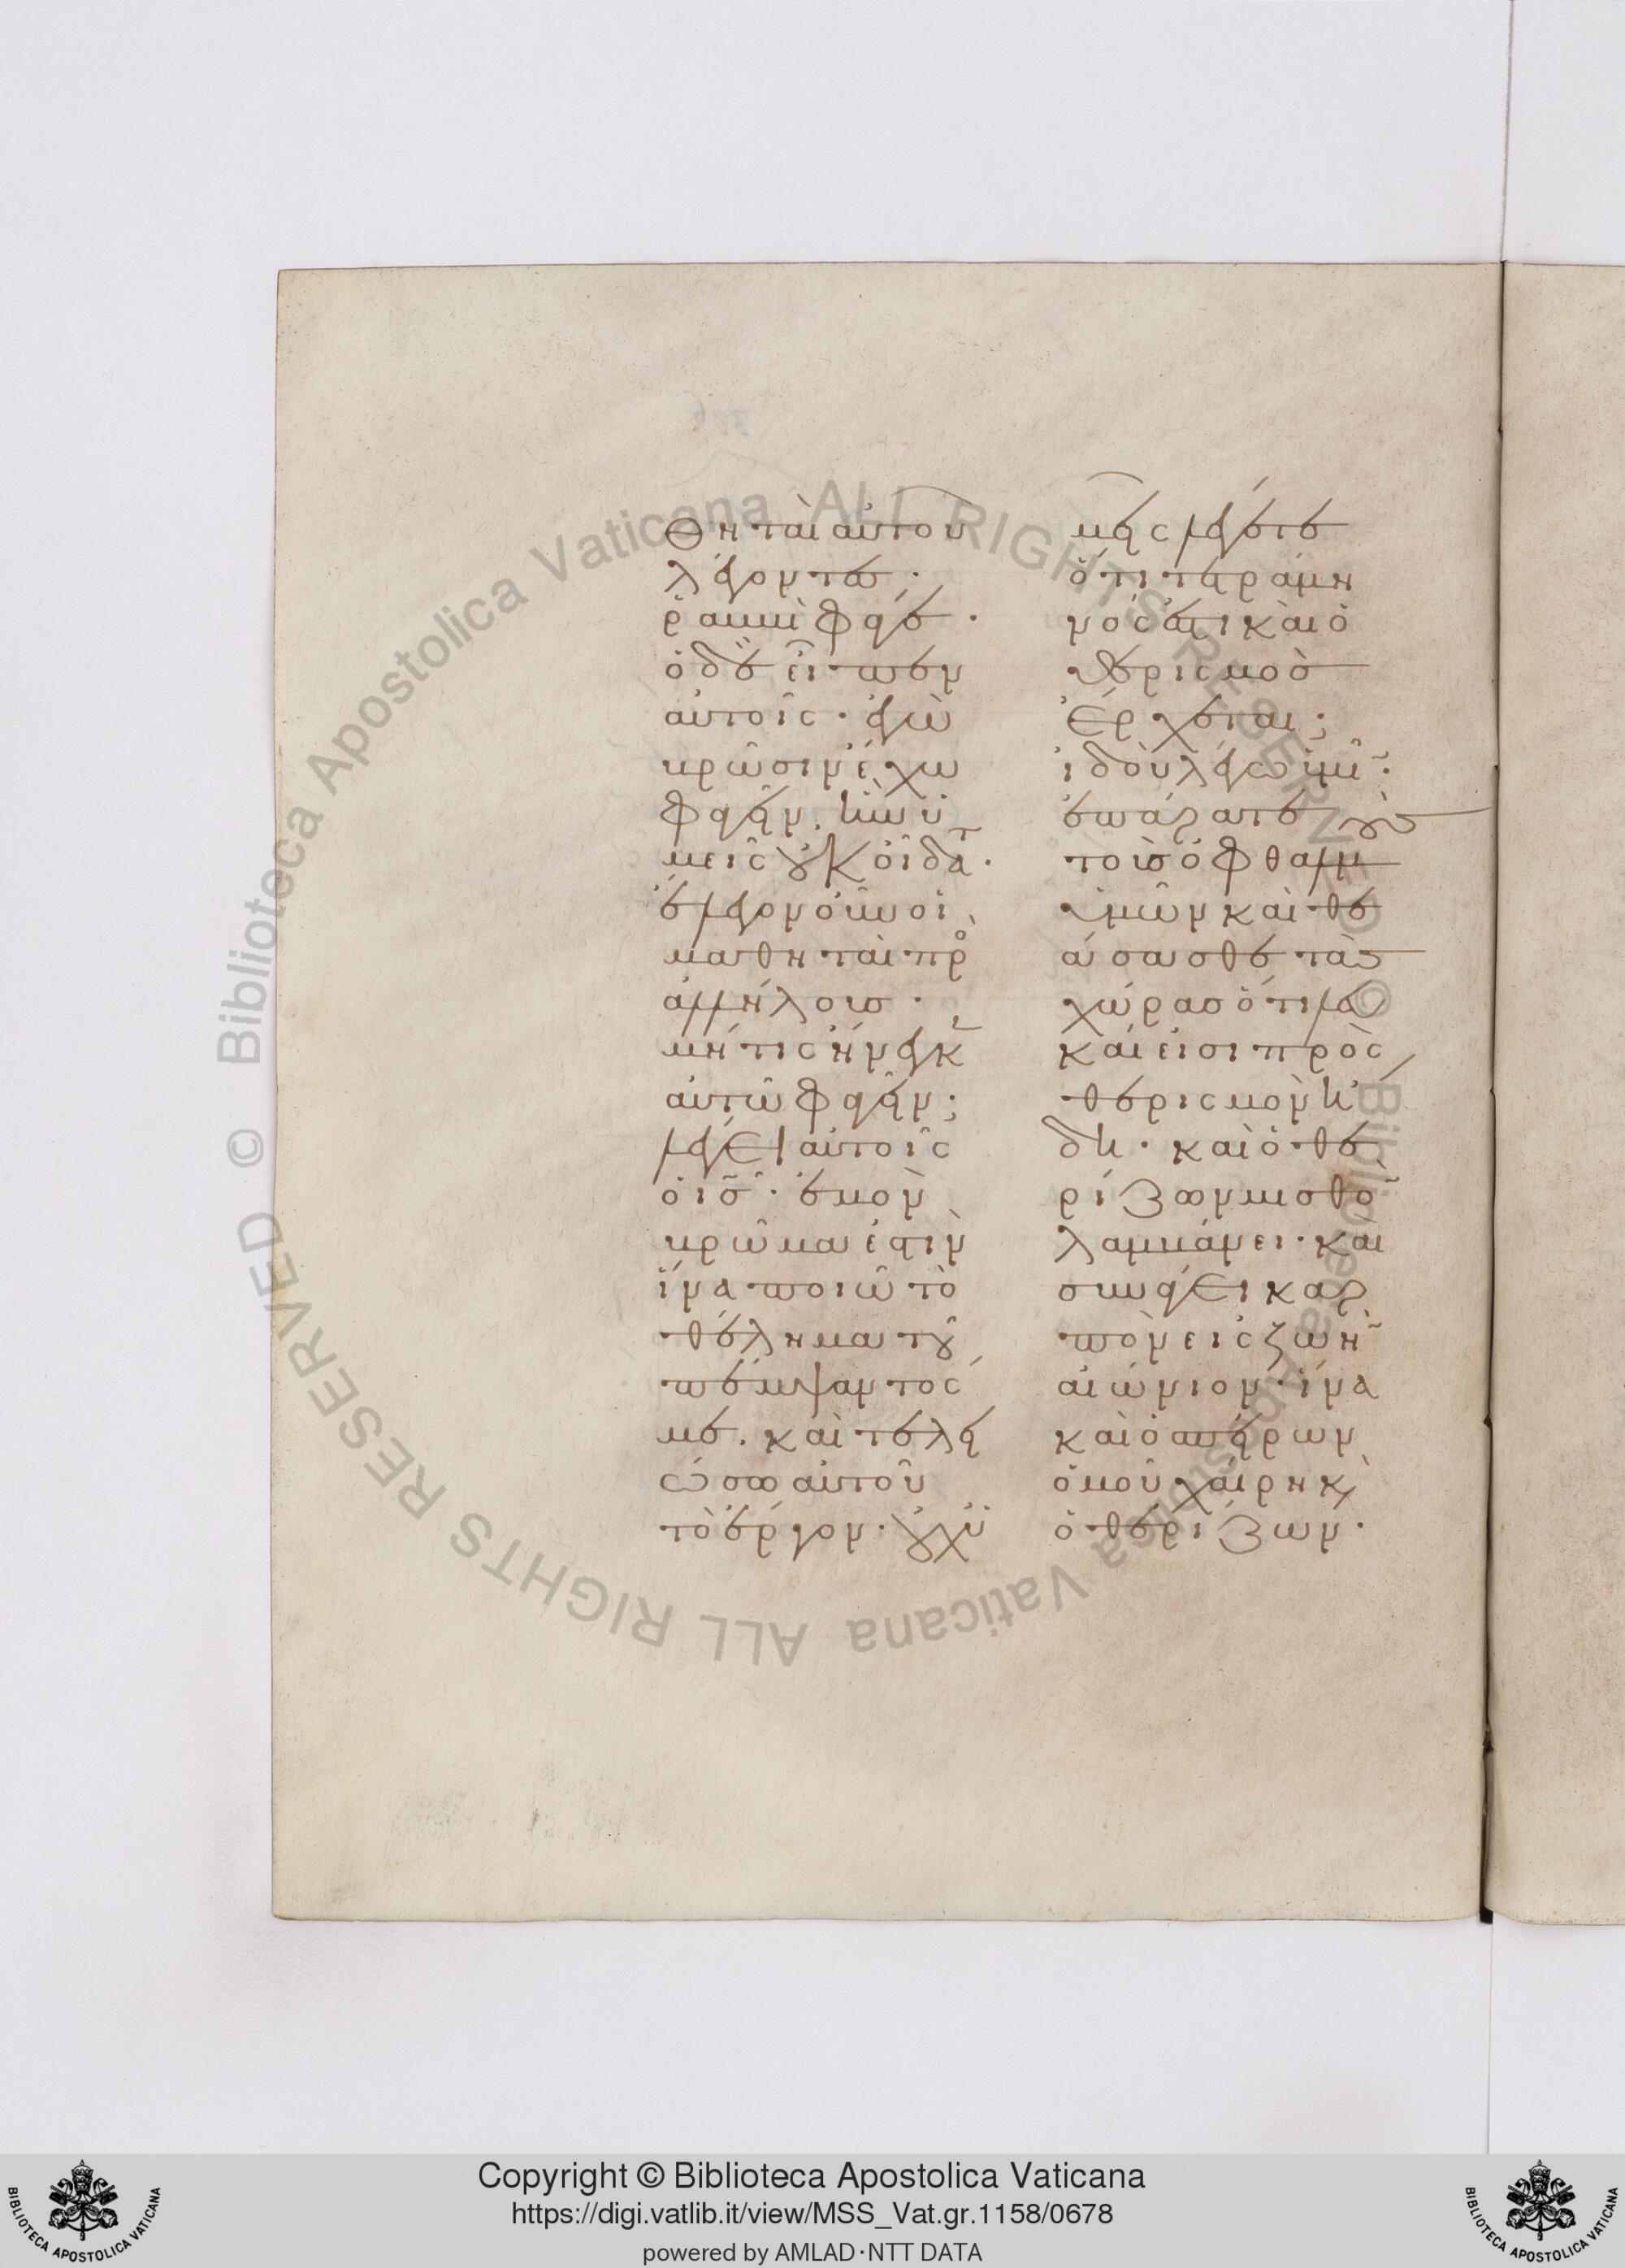 θηταὶ αὐτοῦ
λέγοντες·
ῥαββὶ φάγε·
ὁ δὲ εἶπεν
αὐτοῖς· ἐγὼ
βρῶσιν ἔχω
φαγεῖν, ἣν ὑ
μεῖς οὐκ οἴδατ·
ἔλεγον οὖν οἱ
μαθηταὶ πρ
ἀλλήλους·
μή τις ἤνεγκ
αὐτῶ φαγεῖν;
λέγει αὐτοῖς
ὁ ισ· ἐμὸν
βρῶμα ἐστὶν
ἵνα ποιῶ τὸ
θέλημα τοῦ
πέμψαντός
με. καὶ τελει
ώσω αὐτοῦ
τὸ ἔργον· οὐχ ὑ
μεῖς λέγετε
ὅτι τετράμη
νός ἐστι καὶ ὁ
θερισμὸσ
ἔρχεται;
ἰδοὺ λέγω ὑμῖ·
ἐπάρατε τοὺς
τοὺσ ὀφθαλμ
ὑμῶν καὶ θε
άσασθε τὰς
χώρασ ὅτι λευ
καί εἰσι πρὸς
θερισμὸν ἤ
δη· καὶ ὁ θε
ρίζων μισθὸ
λαμβάνει· καὶ
συνάγει καρ
πὸν εἰς ζωὴ
αἰώνιον· ἵνα
καὶ ὁ σπείρων
ὁμοῦ χαίρη κ
ὁ θερίζων·
Copyright © Biblioteca Apostolica Vaticana
https://digi.vatlib.it/view/MSS_Vat.gr.1158/0678
powered by AMLAD·NTT DATA
BIBLIOTECA APOSTOLICA VATICANA
BIBLIOTECA APOSTOLICA VATICANA
© Biblioteca Apostolica Vaticana ALL RIGHTS RESERVED
© Biblioteca Apostolica Vaticana ALL RIGHTS RESERVED